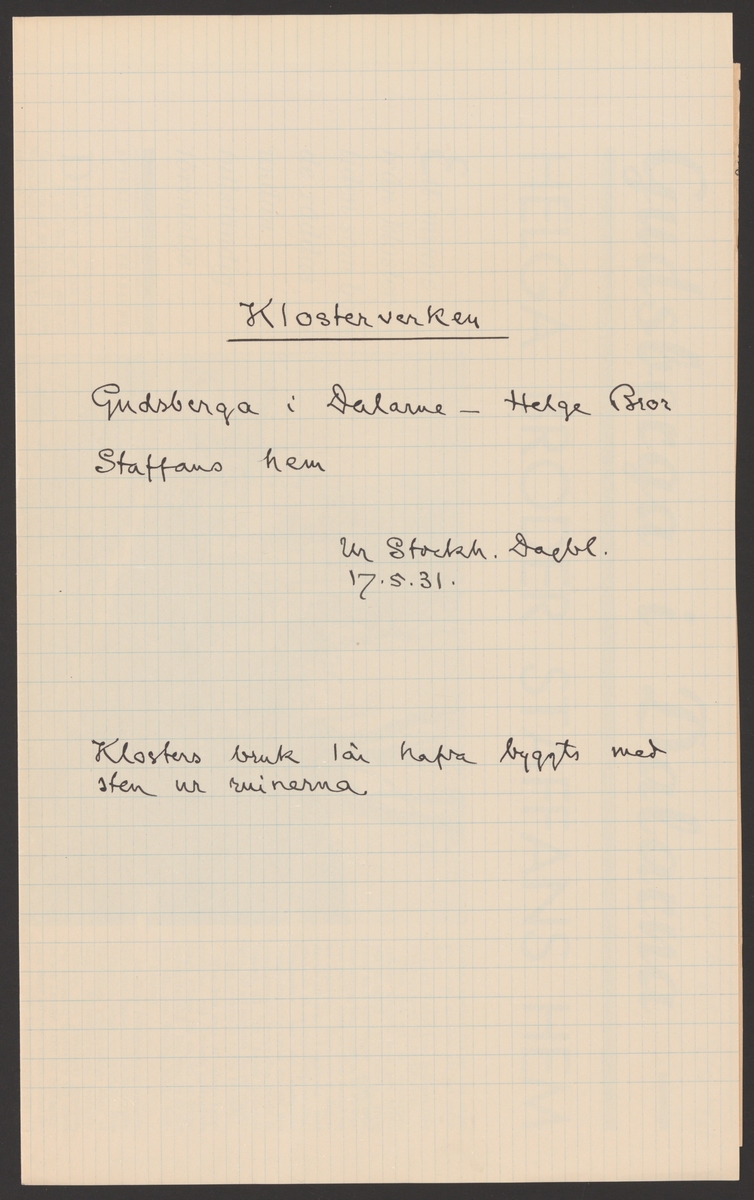 Klosterverken
Gudsberga i Dalarne – Helge Bror
Staffans hem
Ur Stockh. Dagbl.
17.5.31.
Klosters bruk lär hafva byggts med
sten ur ruinerna